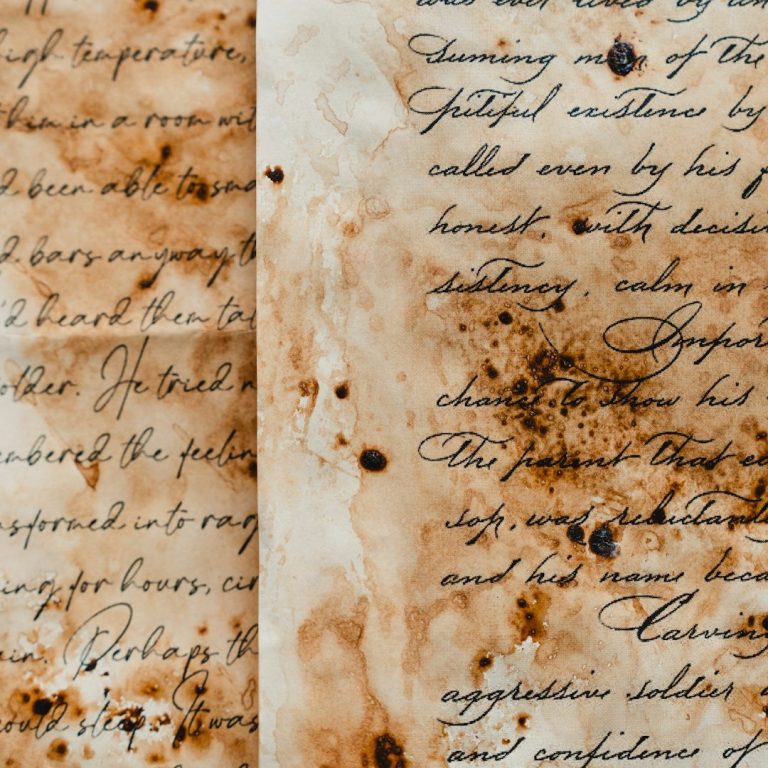 high temperature,
him in a room wit
d been able to smo
d bars anyway th
'd heard them tal
older. He tried n
embered the feelin
nsformed into rar
ing for hours, cir
ain. Perhaps th
could sleep. It was
was ever lived by
suming man of the
pitiful existence by
called even by his f
honest, with decisi
sistency, calm in
Impor
chance to show his
The parent that ea
son, was reluctantl
and his name beca
Carving
aggressive soldier
and confidence of